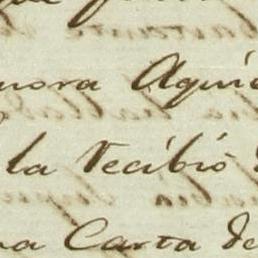 nora Aqui
la recibió
na Carta de